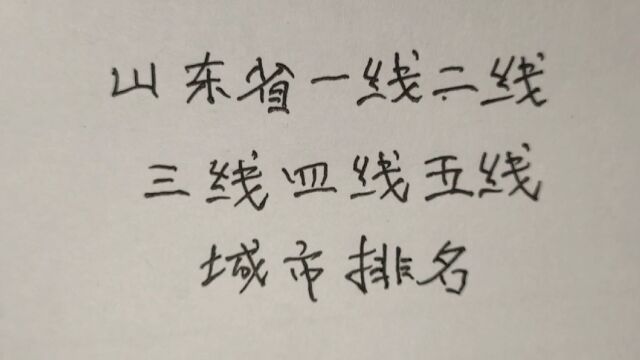 山东省一线二线
三线四线五线
城市排名